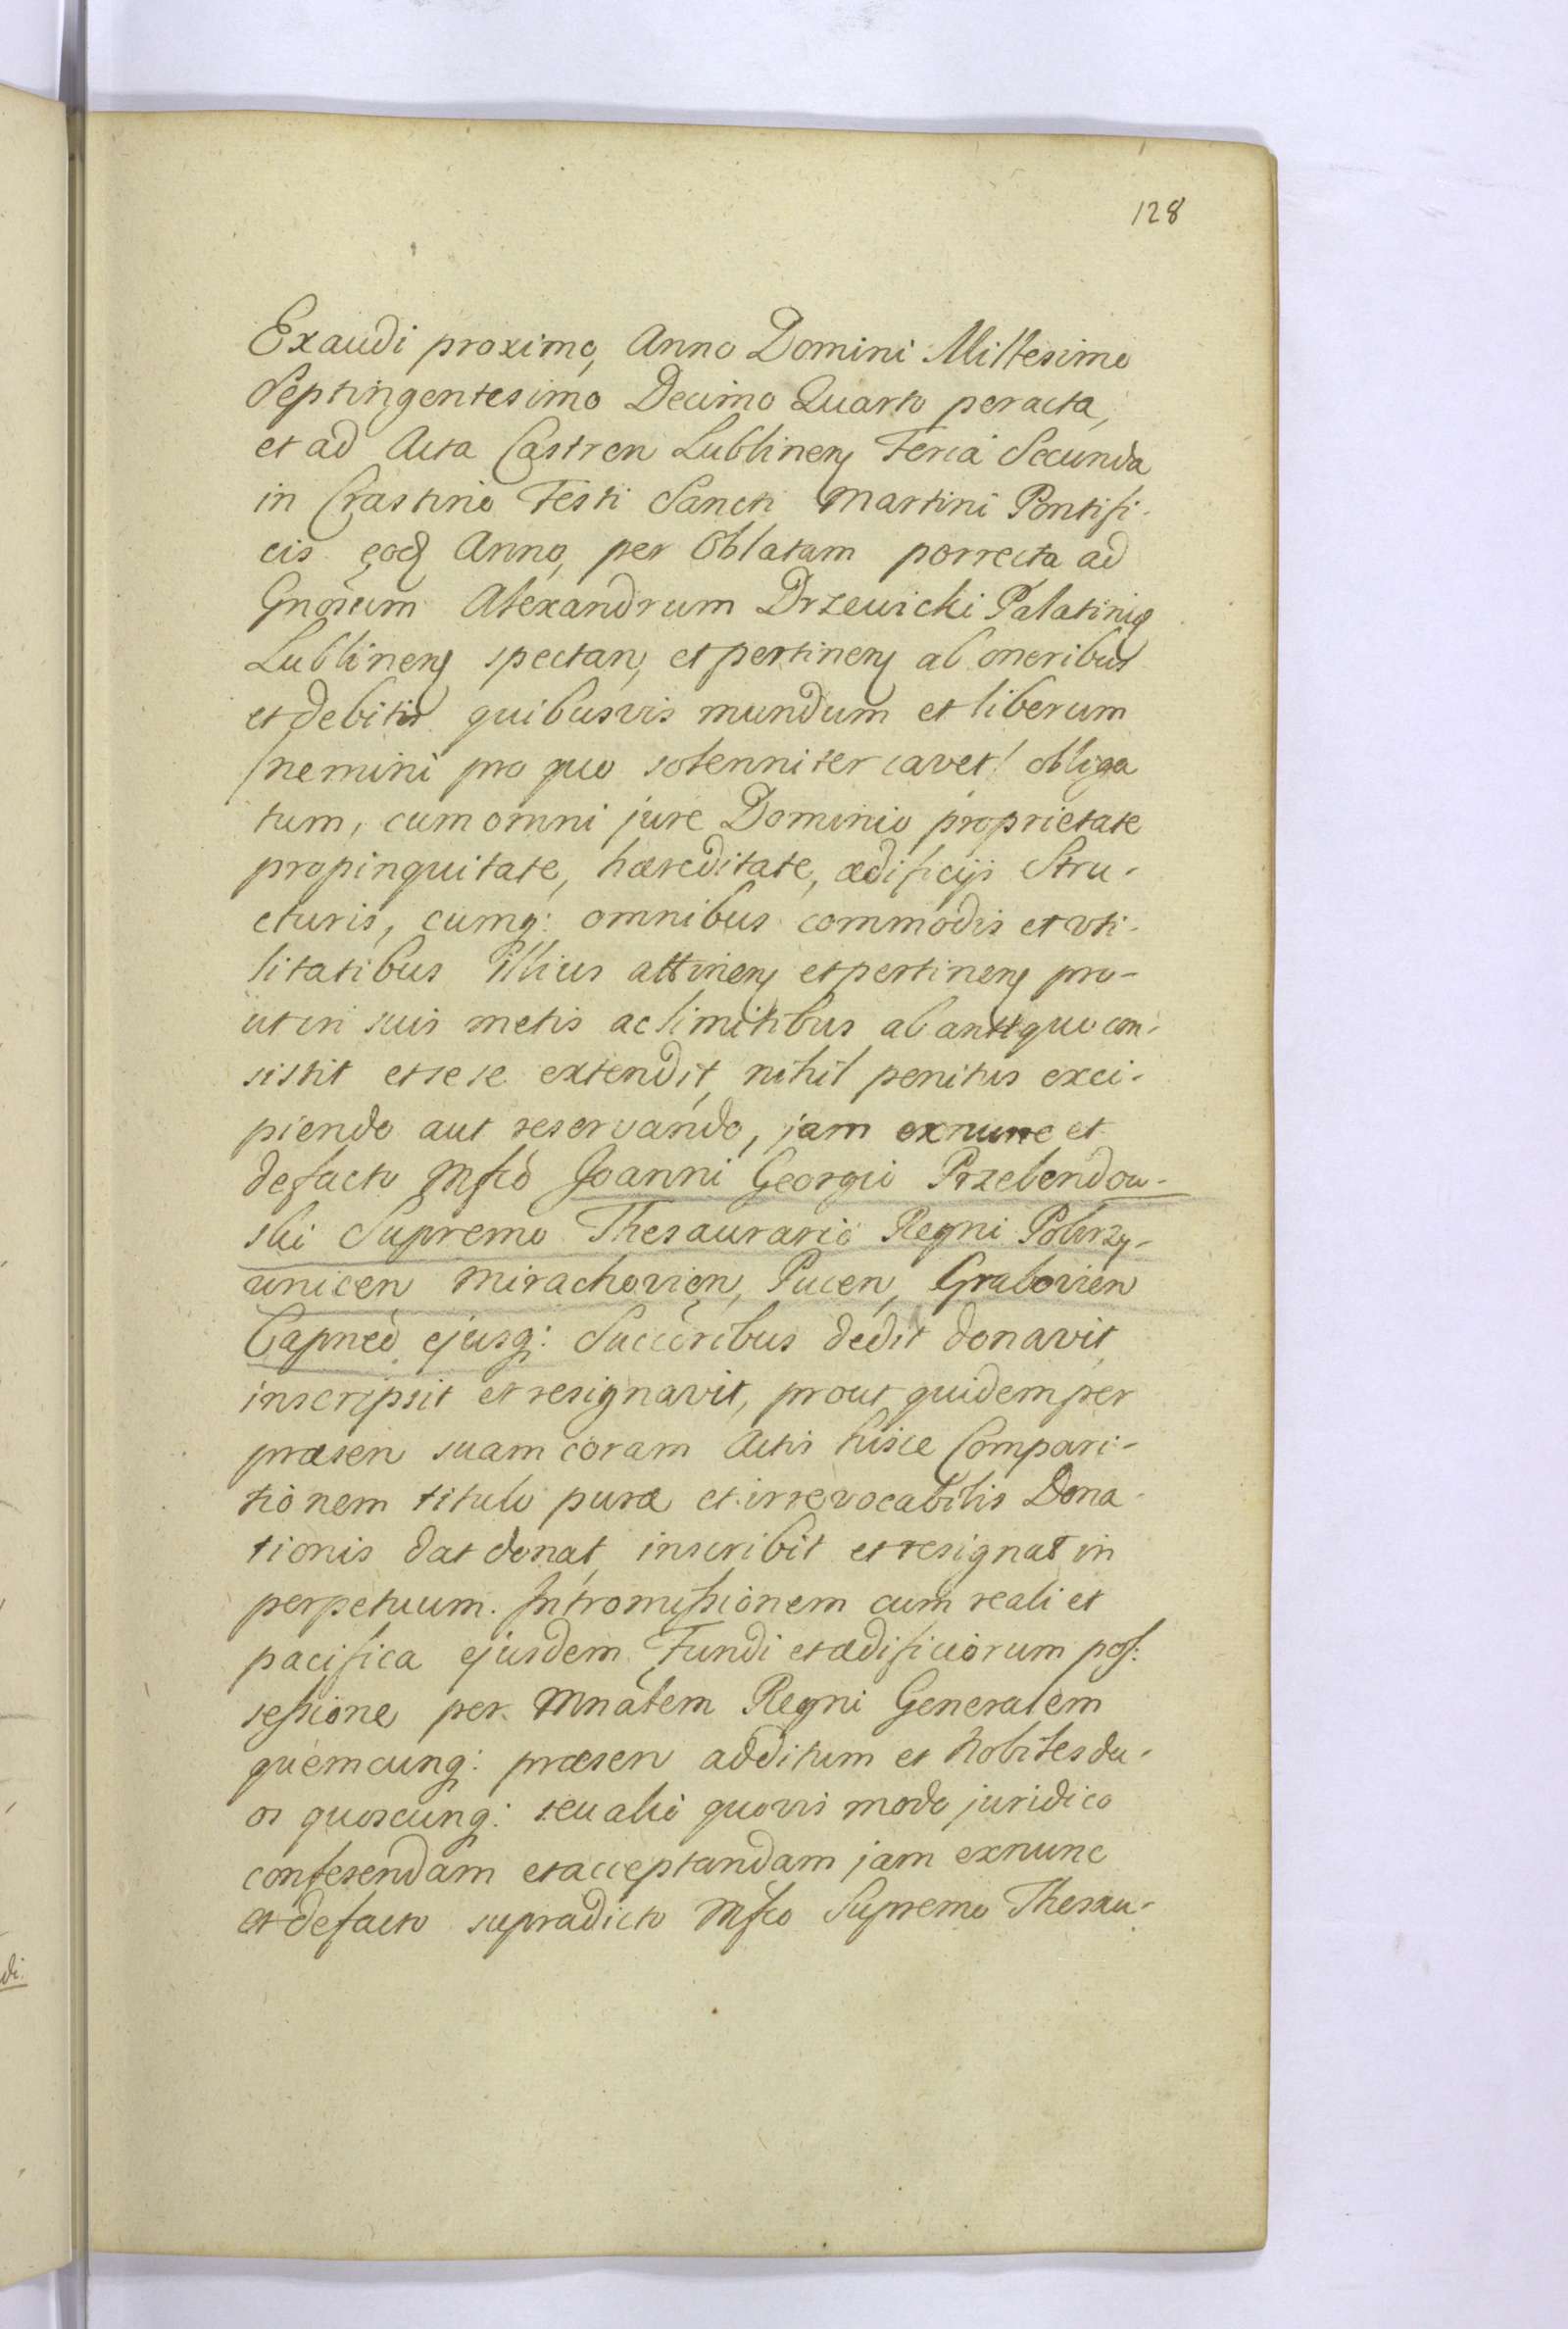 128
Exaudi proximo, Anno Domini Millesimo
Septingentesimo Decimo Quarto peracta,
et ad Acta Castren Lublinen Feria Secunda
in Crastino Festi Sancti Martini Pontifi-
cis eod Anno, per Oblatam porrecta ad
Gnosum Alexandrum Drzewicki Palatinid
Lublinen spectan, et pertinen ab oneribus
et debitis quibusvis mundum et liberum
/nemini pro quo solenniter cavet/ obliga
tum, cum omni jure Dominio proprietate
propinquitate, hæreditate, ædificijs Stru-
cturis, cumq: omnibus commodis et uti-
litatibus illius attinen et pertinen pro-
ut in suis metis ac limitibus ab antiquo con-
sistit et sese extendit, nihil penitus exci-
piendo aut reservando, jam exnunc et
defacto Mfco Joanni Georgio Przebendow-
ski Supremo Thesaurario Regni Pobrzy-
wnicen Mirachovien, Pucen, Grabovien
Capneo ejusq: Succoribus dedit donavit,
inscripsit et resignavit, prout quidem per
præsen suam coram Actis hisce Compari-
tionem titulo puræ et irrevocabilis Dona-
tionis dat donat, inscribit et resignat in
perpetuum. Intromissionem cum reali et
pacifica ejusdem Fundi et ædificiorum pos:
sessione per Mnalem Regni Generalem
quemcunq: præsen additum et Nobiles du-
os quoscunq: seu alio quovis modo juridico
conferendam et acceptandam jam exnunc
et defacto supradicto Mfco Supremo Thesau-
di.